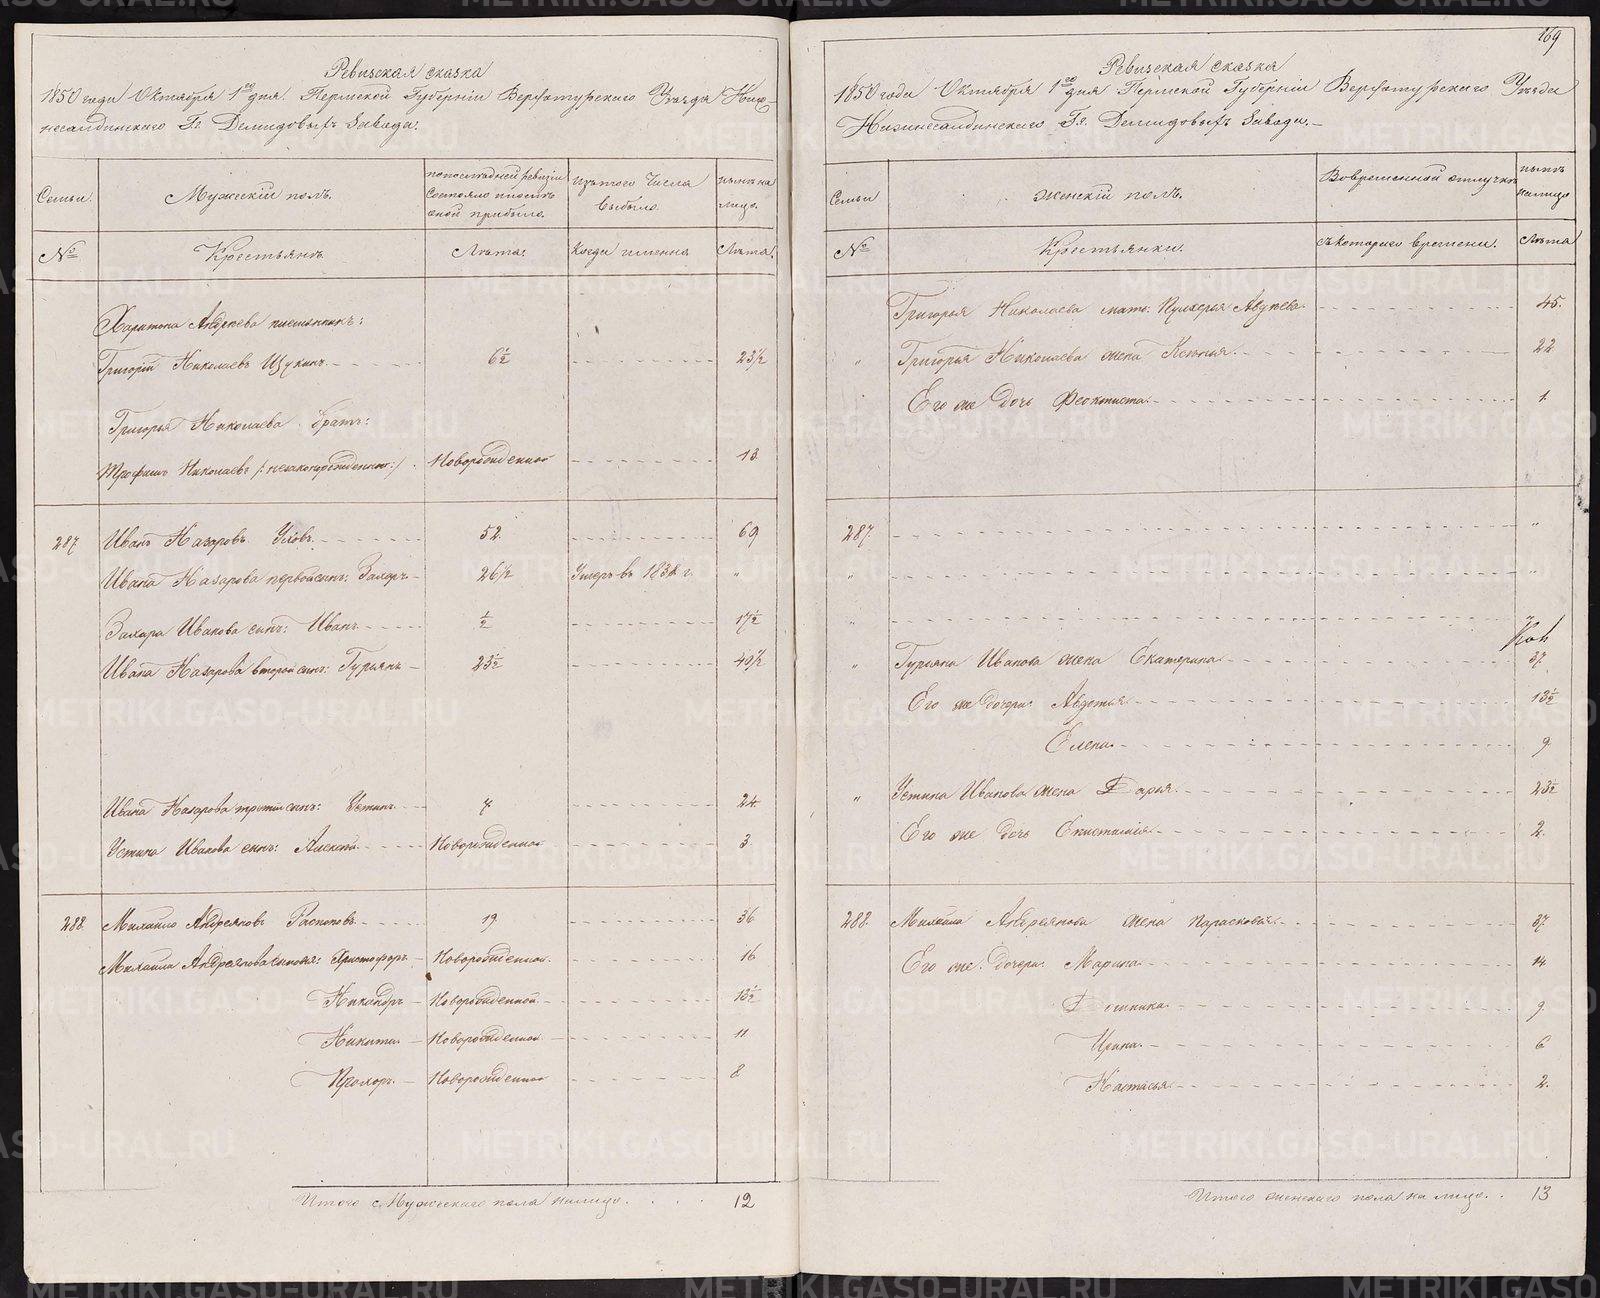 Ревизская сказка
1850 года Октября 1го дня. Пермской Губернiи Верхотурскаго Уѣзда Ниж-
несалдинскаго Гг. Демидовыхъ Завода.
Семьи.
Мужескiй полъ.
по последней ревизiи
состояло и послѣ
оной прибыло.
Изъ того числа
выбыло.
нынѣ на
лицо.
№
Крестьянъ
Лѣта.
Когда именно
Лѣта.
Харитона Авдѣева племянникъ:
Григорiй Николаевъ Щукинъ. 6½ 23½
Григорья Николаева братъ:
Трофимъ Николаевъ /:незаконорожденной:/ Новорожденной 13
287. Иванъ Назаровъ 52. 69
Ивана Назарова первой сынъ: Захаръ 26½ Умеръ въ 1838 г. "
Захара Иванова сынъ: Иванъ ½ 17½
Ивана Назарова второй сынъ: Гурьянъ 23½ 40½
Ивана Назарова третiй сынъ: Устинъ 24.
Устина Иванова сынъ: Алексѣй Новорожденной 3
288. Михайло Андреяновъ Распоповъ. 19 36
Михайла Андреянова сыновья: Христофоръ Новорожденной. 16
Никандръ Новорожденной 13½
Никита Новорожденной 11
Прохоръ Новорожденной 8
Итого Мужескаго пола налицо. 12
169
Ревизская сказка
1850 года Октября 1го дня Пермской Губернiи Верхотурскаго Уѣзда
Нижнесалдинскаго Гг. Демидовыхъ Завода.
Семьи
Женскiй полъ.
Во временной отлучкѣ
нынѣ
налицо
№
Крестьянки.
съ котораго времени.
Лѣта
Григорья Николаева мать: Пулхерья Авдѣева 45.
" Григорья Николаева жена Ксенья. 22.
Его же дочь Феоктиста. 1.
287. "
" "
" "
" Гурьяна Иванова жена Екатерина 37.
Его же дочери: Авдотья 13½
Елена. 9.
" Устина Иванова жена Дарья. 23½
Его же дочь 2.
288. Михайла Андреянова жена Парасковья. 37.
Его же дочери: Марина. 14
Домника. 9.
Ирина. 6
Настасья 2.
Итого женскаго пола на лицо. 13
METRIKI.GASO-URAL.RU